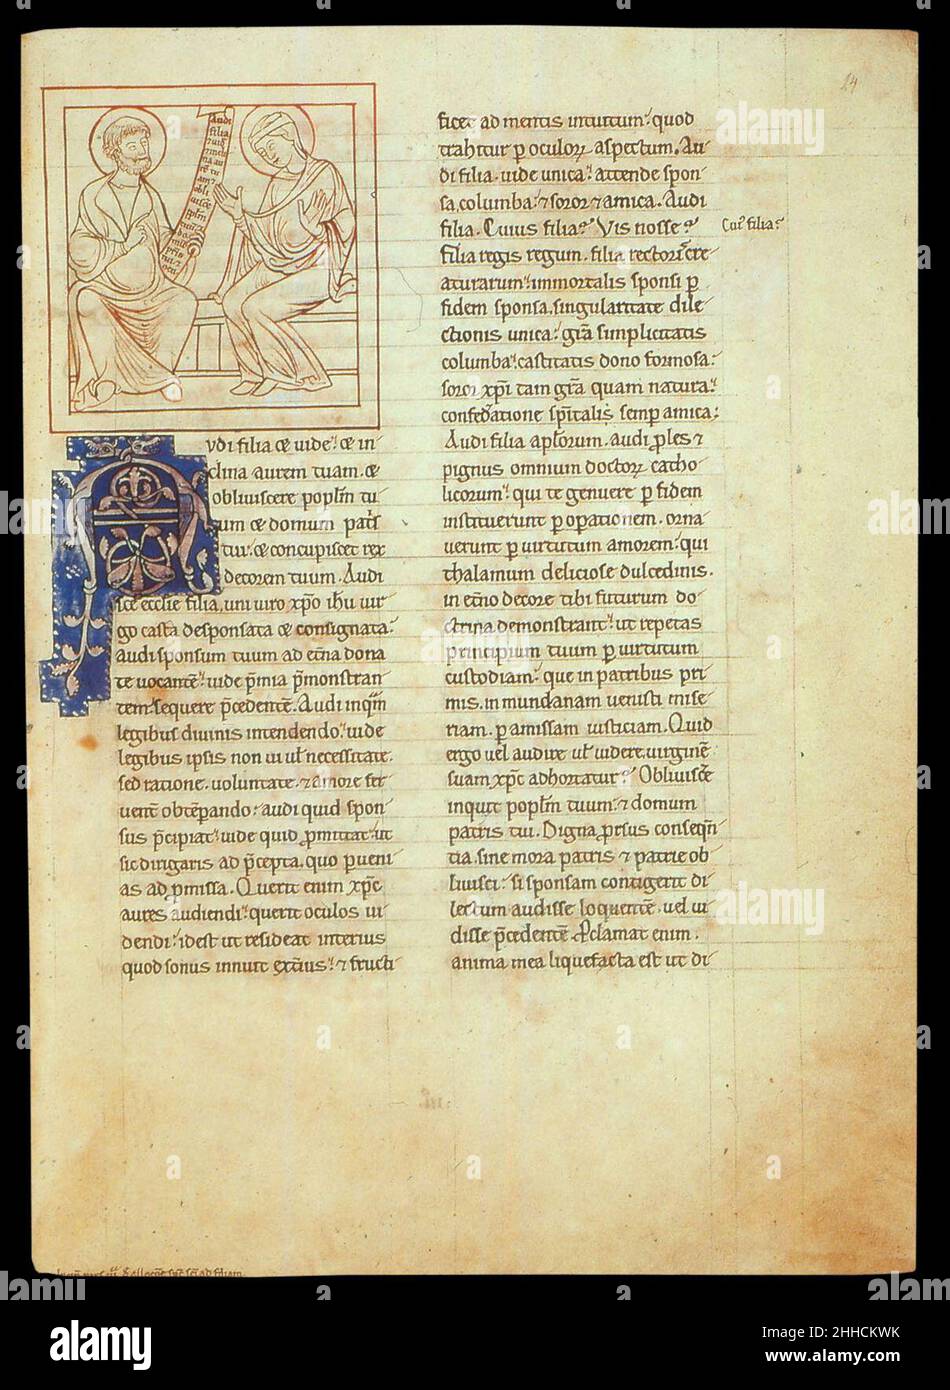 24
Audi
filia
Vdi filia & uide.' & in
clina aurem tuam. &
obliuiscere popl̄m tu
um & domum patris
tui. & concupiscet rex
decorem tuum. Audi
sc̄e eccl̄ie filia, uni uiro xp̄o ihū uir
go casta desponsata & consignata.'
audi sponsum tuum ad et̄na dona
te uocantē.' uide p̄mia p̄monstran
tem.' sequere p̄cedentē. Audi inquā
legibus diuinis intendendo.' uide
legibus ipsis non ui ul̄ necessitate.
sed ratione. uoluntate. ⁊ amore fer
uenti obtēperando.' audi quid spon
sus p̄cipiat.' uide quid ꝓmittat.' ut
sic dirigaris ad p̄cepta. quo ꝑueni
as ad ꝓmissa. Querit enim xp̄c
aures audiendi.' querit oculos ui
dendi.' idest ut resideat interius
quod sonus innuit ext̄ius.' ⁊ fructi
ficet ad mentis intuitum.' quod
trahitur ꝑ oculoꝝ aspectum. Au
di filia. uide unica.' attende spon
sa, columba.' ⁊ soror ⁊ amica. Audi
filia. Cuius filia? Vis nosse?
Cui' filia?
filia regis regum. filia rectoris cre
aturarum.' immortalis sponsi ꝑ
fidem sponsa, singularitate dile
ctionis unica.' gr̄a simplicitatis
columba.' castitatis dono formosa.'
soror xp̄i tam gr̄a quam natura.'
confed̄atione sp̄italis semꝑ amica;
Audi filia apl̄orum. audi ꝓles ⁊
pignus omnium doctoꝝ catho
licorum.' qui te genuere ꝑ fidem
instituerunt ꝑ opationem. orna
uerunt ꝑ uirtutum amorem.' qui
thalamum deliciose dulcedinis.
in et̄no decore tibi futurum do
ctrina demonstrant.' ut repetas
principium tuum ꝑ uirtutum
custodiam.' que in patribus pri
mis. in mundanam uenisti mise
riam. ꝑ amissam iusticiam. Quid
ergo uel audire ul̄ uidere. uirginē
suam xp̄c adhortatur? Obliuisc̄e
inquit popl̄m tuum.' ⁊ domum
patris tui. Digna ꝓrsus conseqn̄
tia. sine mora patris ⁊ patrie ob
liuisci.' si sponsam contigerit di
lectum audisse loquentē. uel ui
disse p̄cedentē. Proclamat enim.
anima mea liquefacta est ut di
alamy
Image ID: 2HHCKWK
www.alamy.com